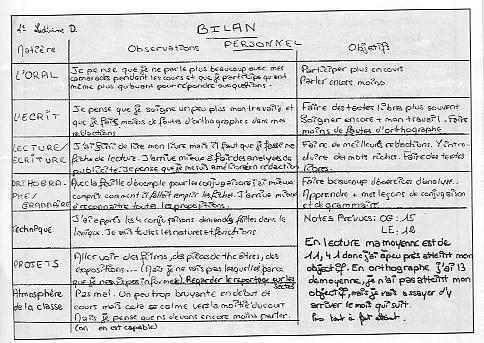 BILAN
PERSONNEL
Matière Observations Objectifs
L'ORAL
Je pense que je ne parle plus beaucoup avec mes
camarades pendant les cours et que je participe quand
même plus qu'avant pour répondre aux questions.
Participer plus en cours
Parler encore moins
L'ECRIT
Je pense que je soigne un peu plus mon travail et
que je fais moins de fautes d'orthographes dans mes
rédactions
Faire des textes libres plus souvent
Soigner encore + mon travail. Faire
moins de fautes d'orthographe
LECTURE/
ECRITURE
J'ai fini de lire mon livre mais il faut que je fasse ma
fiche de lecture. J'arrive mieux à faire des analyses de
publicité. Je pense que je me suis améliorée en rédaction
Faire de meilleures rédactions. Y intro-
duire des mots riches. Faire des textes
libres.
ORTHOGRA-
PHE/
GRAMMAIRE
Avec la feuille d'exemple pour les conjugaisons j'ai mieux
compris comment il fallait remplir les fiches. J'arrive mieux
à reconnaître toutes les propositions.
Faire beaucoup d'exercices d'analyse.
Apprendre + mes leçons de conjugaison
et de grammaire
Technique.
J'ai appris les 4 conjugaisons demandées faites dans le
lexique. Je sais toutes les natures et fonctions
Notes Prévues: OG: 15
LE: 12
PROJETS
Aller voir des films, des pièces de théâtres, des
expositions... (Mais je ne sais pas lesquelles parce
que je ne suis pas informée). Regarder le reportage sur les
sectes
En lecture ma moyenne est de
11,41 donc j'ai à peu près atteint mon
objectif. En orthographe j'ai 13
de moyenne, je n'ai pas atteint mon
objectif, mais je vais essayer d'y
arriver le mois qui suit.
Pas tout à fait atteint.
Atmosphère
de la classe
Pas mal. Un peu trop bruyante en début de
cours mais cela se calme vers la moitié du cours
Mais je pense que ns devons encore moins parler.
(on en est capable)